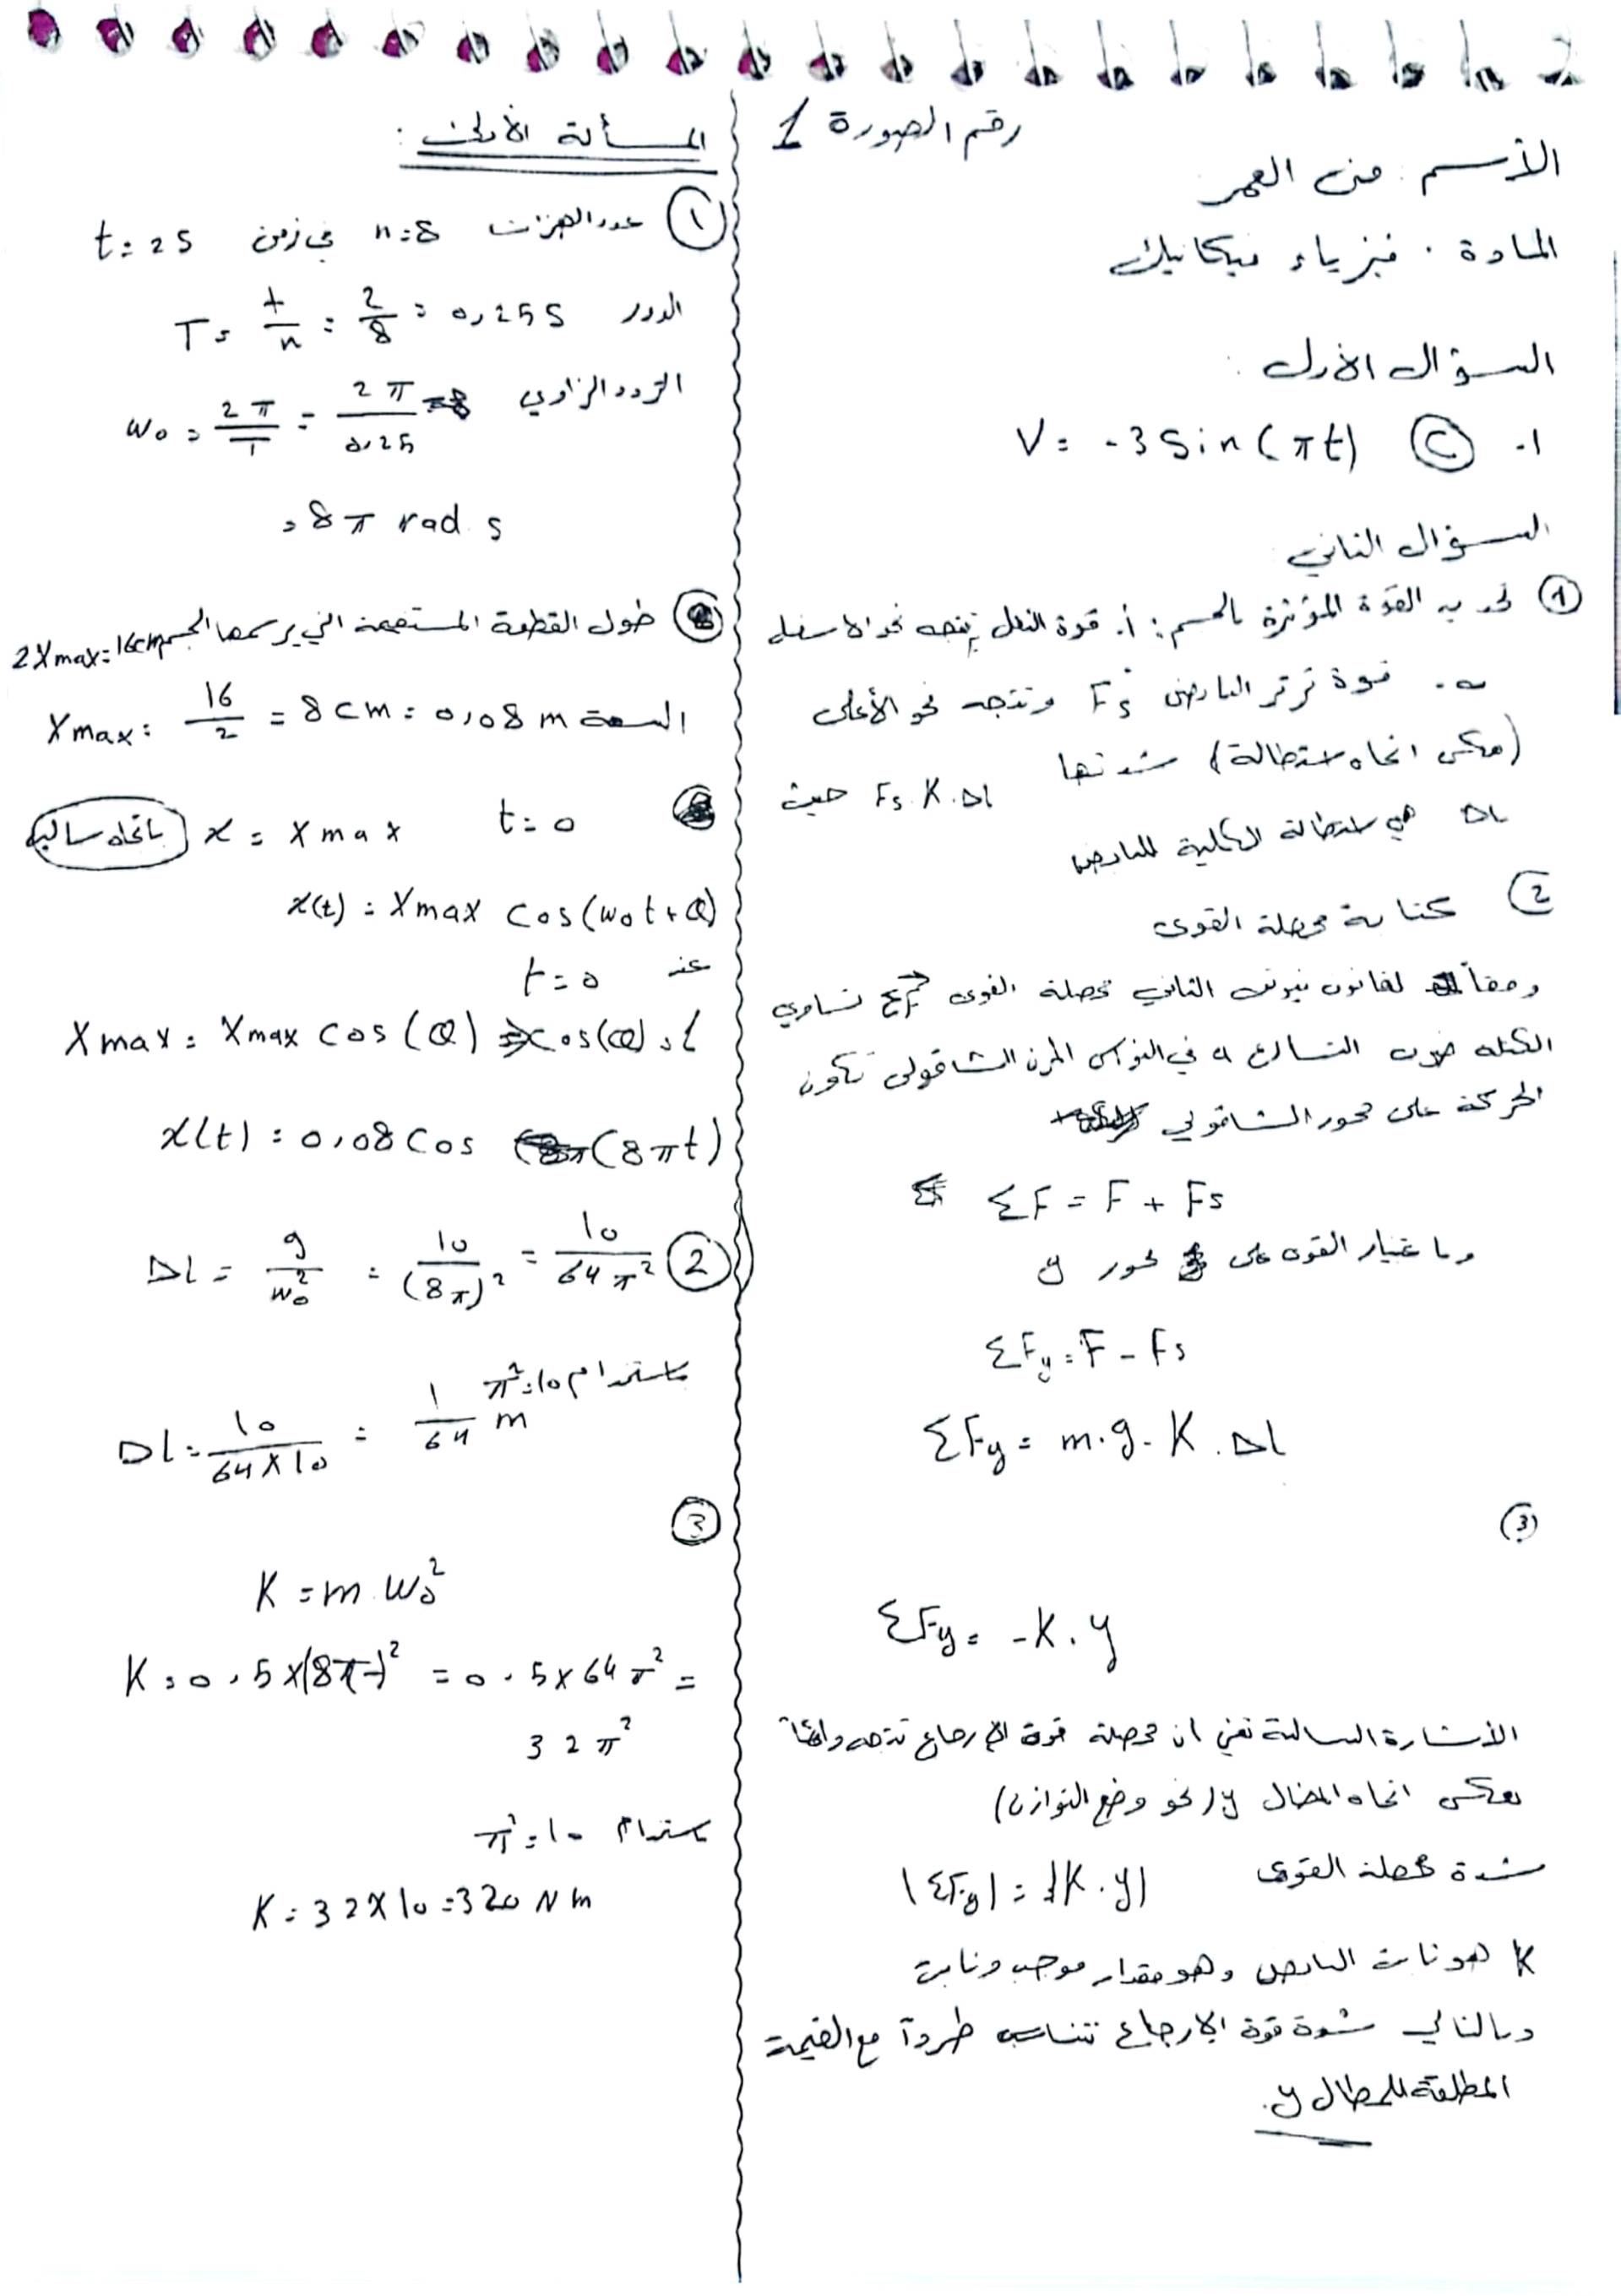 رقم الصورة 1
الأسم : منى العمر
المادة : فيزياء ميكانيك
السؤال الأول :
1- C V = -3 Sin(πt)
السؤال الثاني
① تحديد القوة المؤثرة بالجسم : أ. قوة الثقل يتجه نحو الاسفل
ب. قوة توتر النابض Fs وتتجه نحو الأعلى
(عكس اتجاه استطالة) شدتها Fs = K.Δl حيث
Δl هي استطالة الكلية للنابض
② كتابة محصلة القوى
وفقاً لقانون نيوتن الثاني محصلة القوى تساوي
الكتلة ضرب التسارع a في النواس المرن الشاقولي تكون
الحركة على محور الشاقولي
ΣF = F + Fs
وباعتبار القوى على محور y
ΣFy = F - Fs
ΣFy = m.g - K.Δl
③
ΣFy = -K.y
الأشارة السالبة تعني ان محصلة قوة الإرجاع تتجه دائماً
بعكس اتجاه المطال y (نحو وضع التوازن)
شدة محصلة القوى |ΣFy| = |K.y|
K هو ثابت النابض وهو مقدار موجب وثابت
وبالتالي شدة قوة الإرجاع تتناسب طرداً مع القيمة
المطلقة للمطال y.
المسألة الأولى :
① عدد الهزات n=8 في زمن t=2s
الدور T = t/n = 2/8 = 0,25s
التردد الزاوي ω0 = 2π/T = 2π/0,25
= 8π rad.s
طول القطعة المستقيمة التي يرسمها الجسم 2Xmax=16cm
السعة Xmax = 16/2 = 8cm = 0,08m
t=0 x = Xmax باتجاه سالب
x(t) = Xmax cos(ω0t+φ)
عند t=0
Xmax = Xmax cos(φ) ⇒ cos(φ)=1
x(t) = 0,08 cos (8πt)
② Δl = g/ω0² = 10/(8π)² = 10/64π²
باستخدام π²=10
Δl = 10/64×10 = 1/64 m
③
K = m.ω0²
K = 0.5×(8π)² = 0.5×64π² =
32π²
باستخدام π²=10
K = 32×10 = 320 N m